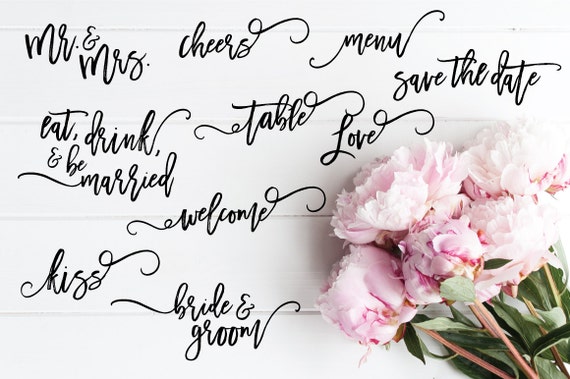 mr. &
mrs.
cheers
menu
save the date
eat, drink,
& be
married
table
love
welcome
kiss
bride &
groom